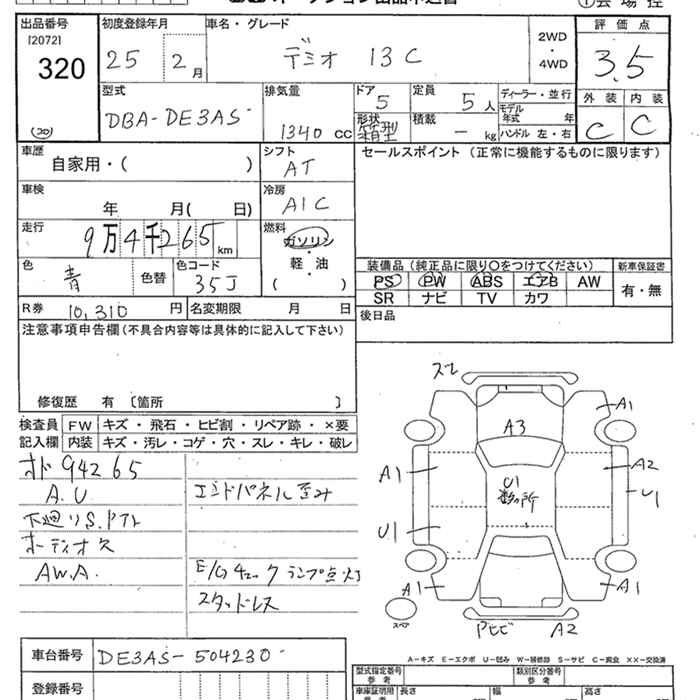 出品番号 [2072] 320 (20)
初度登録年月 25 2月
車名・グレード デミオ 13C
2WD・4WD
評価点 3.5
外装 C 内装 C
型式 DBA-DE3AS
排気量 1340 CC
ドア 5
形状 箱型
定員 5人
積載 - kg
ディーラー・並行
モデル年式 年
ハンドル 左・右
車歴 自家用・( )
シフト AT
セールスポイント (正常に機能するものに限ります)
車検 年 月( 日)
冷房 A/C
走行 9万4千265km
燃料 ガソリン・軽・油 ( )
色 青 色替
色コード 35J
装備品 (純正品に限り○をつけてください)
新車保証書 有・無
PS PW ABS エアB AW
SR ナビ TV カワ
R券 10,310円
名変期限 月 日
後日品
注意事項申告欄(不具合内容等は具体的に記入して下さい)
修復歴 有 〔箇所 〕
検査員記入欄
FW キズ・飛石・ヒビ割・リペア跡・×要
内装 キズ・汚レ・コゲ・穴・スレ・キレ・破レ
オド 94265
A.U
エンドパネル歪み
下廻りS.Pサビ
オーディオ欠
AW.A.
E/Gチェックランプ点灯
スタッドレス
スレ
A1
A3
A1
A2
U1
U1
U1
A1
A1
スペア
A2
A-キズ E-エクボ U-凹み W-補修跡 S-サビ C-腐食 XX-交換済
車台番号 DE3AS-504230
登録番号
型式指定番号 参考
類別区分番号 参考
長さ 幅 高さ